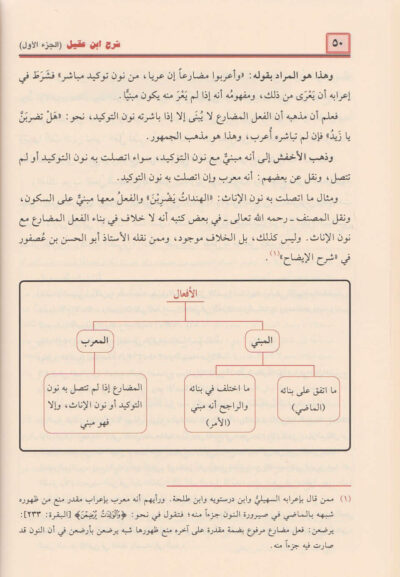 ٥٠
شرح ابن عقيل (الجزء الأول)
وهذا هو المراد بقوله: «وأعربوا مضارعاً إن عريا، من نون توكيد مباشر» فشَرَط في
إعرابه أن يَعْرَى من ذلك، ومفهومُه أنه إذا لم يَعْرَ منه يكون مبنيًّا.
فعلم أن مذهبه أن الفعل المضارع لا يُبْنَى إلا إذا باشرته نون التوكيد، نحو: «هَلْ تَضْرِبَنْ
يا زَيدُ» فإن لم تباشره أُعرب، وهذا هو مذهب الجمهور.
وذهب الأخفش إلى أنه مبنيٌّ مع نون التوكيد، سواء اتصلت به نون التوكيد أو لم
تتصل، ونقل عن بعضهم: أنه معرب وإن اتصلت به نون التوكيد.
ومثال ما اتصلت به نون الإناث: «الهنداتُ يَضْرِبْنَ» والفعلُ معها مبنيٌّ على السكون،
ونقل المصنف ـ رحمه الله تعالى ـ في بعض كتبه أنه لا خلاف في بناء الفعل المضارع مع
نون الإناث. وليس كذلك، بل الخلاف موجود، وممن نقله الأستاذ أبو الحسن بن عُصفور
في «شرح الإيضاح»(١).
الأفعال
المبني
المعرب
ما اتفق على بنائه
(الماضي)
ما اختلف في بنائه
والراجح أنه مبني
(الأمر)
المضارع إذا لم تتصل به نون
التوكيد أو نون الإناث، وإلا
فهو مبني
(١) ممن قال بإعرابه السهيليُّ وابن درستويه وابن طلحة. ورأيهم أنه معرب بإعراب مقدر منع من ظهوره
شبهه بالماضي في صيرورة النون جزءاً منه؛ فتقول في نحو: ﴿وَالْوَالِدَاتُ يُرْضِعْنَ﴾ [البقرة: ٢٣٣]:
يرضعن: فعل مضارع مرفوع بضمة مقدرة على آخره منع ظهورها شبه يرضعن بأرضعن في أن النون قد
صارت فيه جزءاً منه.